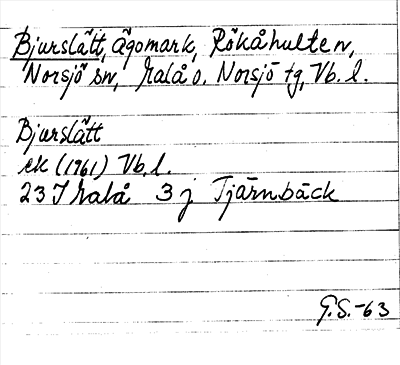 Bjurslått, Ägomark, Rökåhulten,
Norsjö sn, Malå o. Norsjö tg, Vb. l.
Bjurslått
ek (1961) Vb. l.
23 J Malå 3 j Tjärnbäck
G.S.-63